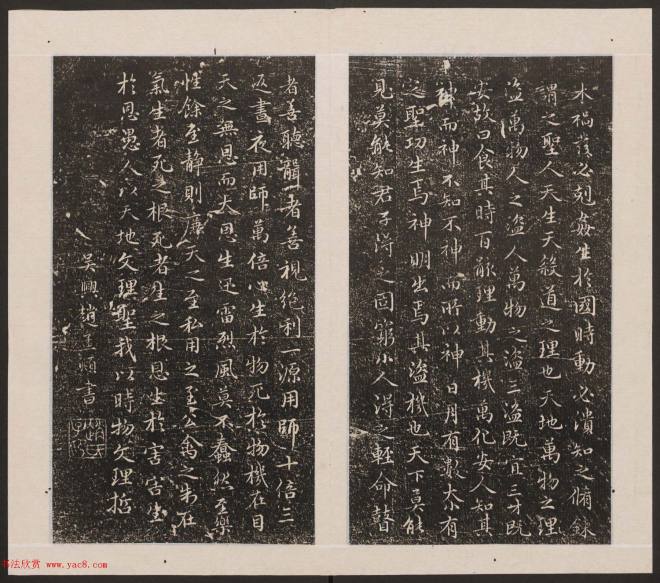 木禍發必剋姦生於國時動必潰知之脩鍊
謂之聖人天生天殺道之理也天地萬物之理
盜萬物人之盜人萬物之盜三盜既宜三才既
安故曰食其時百骸理動其機萬化安人知其
神而神不知不神而所以神日月有數大小有
之聖功生焉神明出焉其盜機也天下莫能
見莫能知君子得之固窮小人得之輕命瞽
者善聽聾者善視絕利一源用師十倍三
返晝夜用師萬倍心生於物死於物機在目
天之無恩而大恩生迅雷烈風莫不蠢然至樂
性餘至靜則廉天之至私用之至公禽之制在
氣生者死之根死者生之根恩生於害害生
於恩愚人以天地文理聖我以時物文理哲
吳興趙孟頫書
趙氏子昂
书法欣赏 www.yac8.com